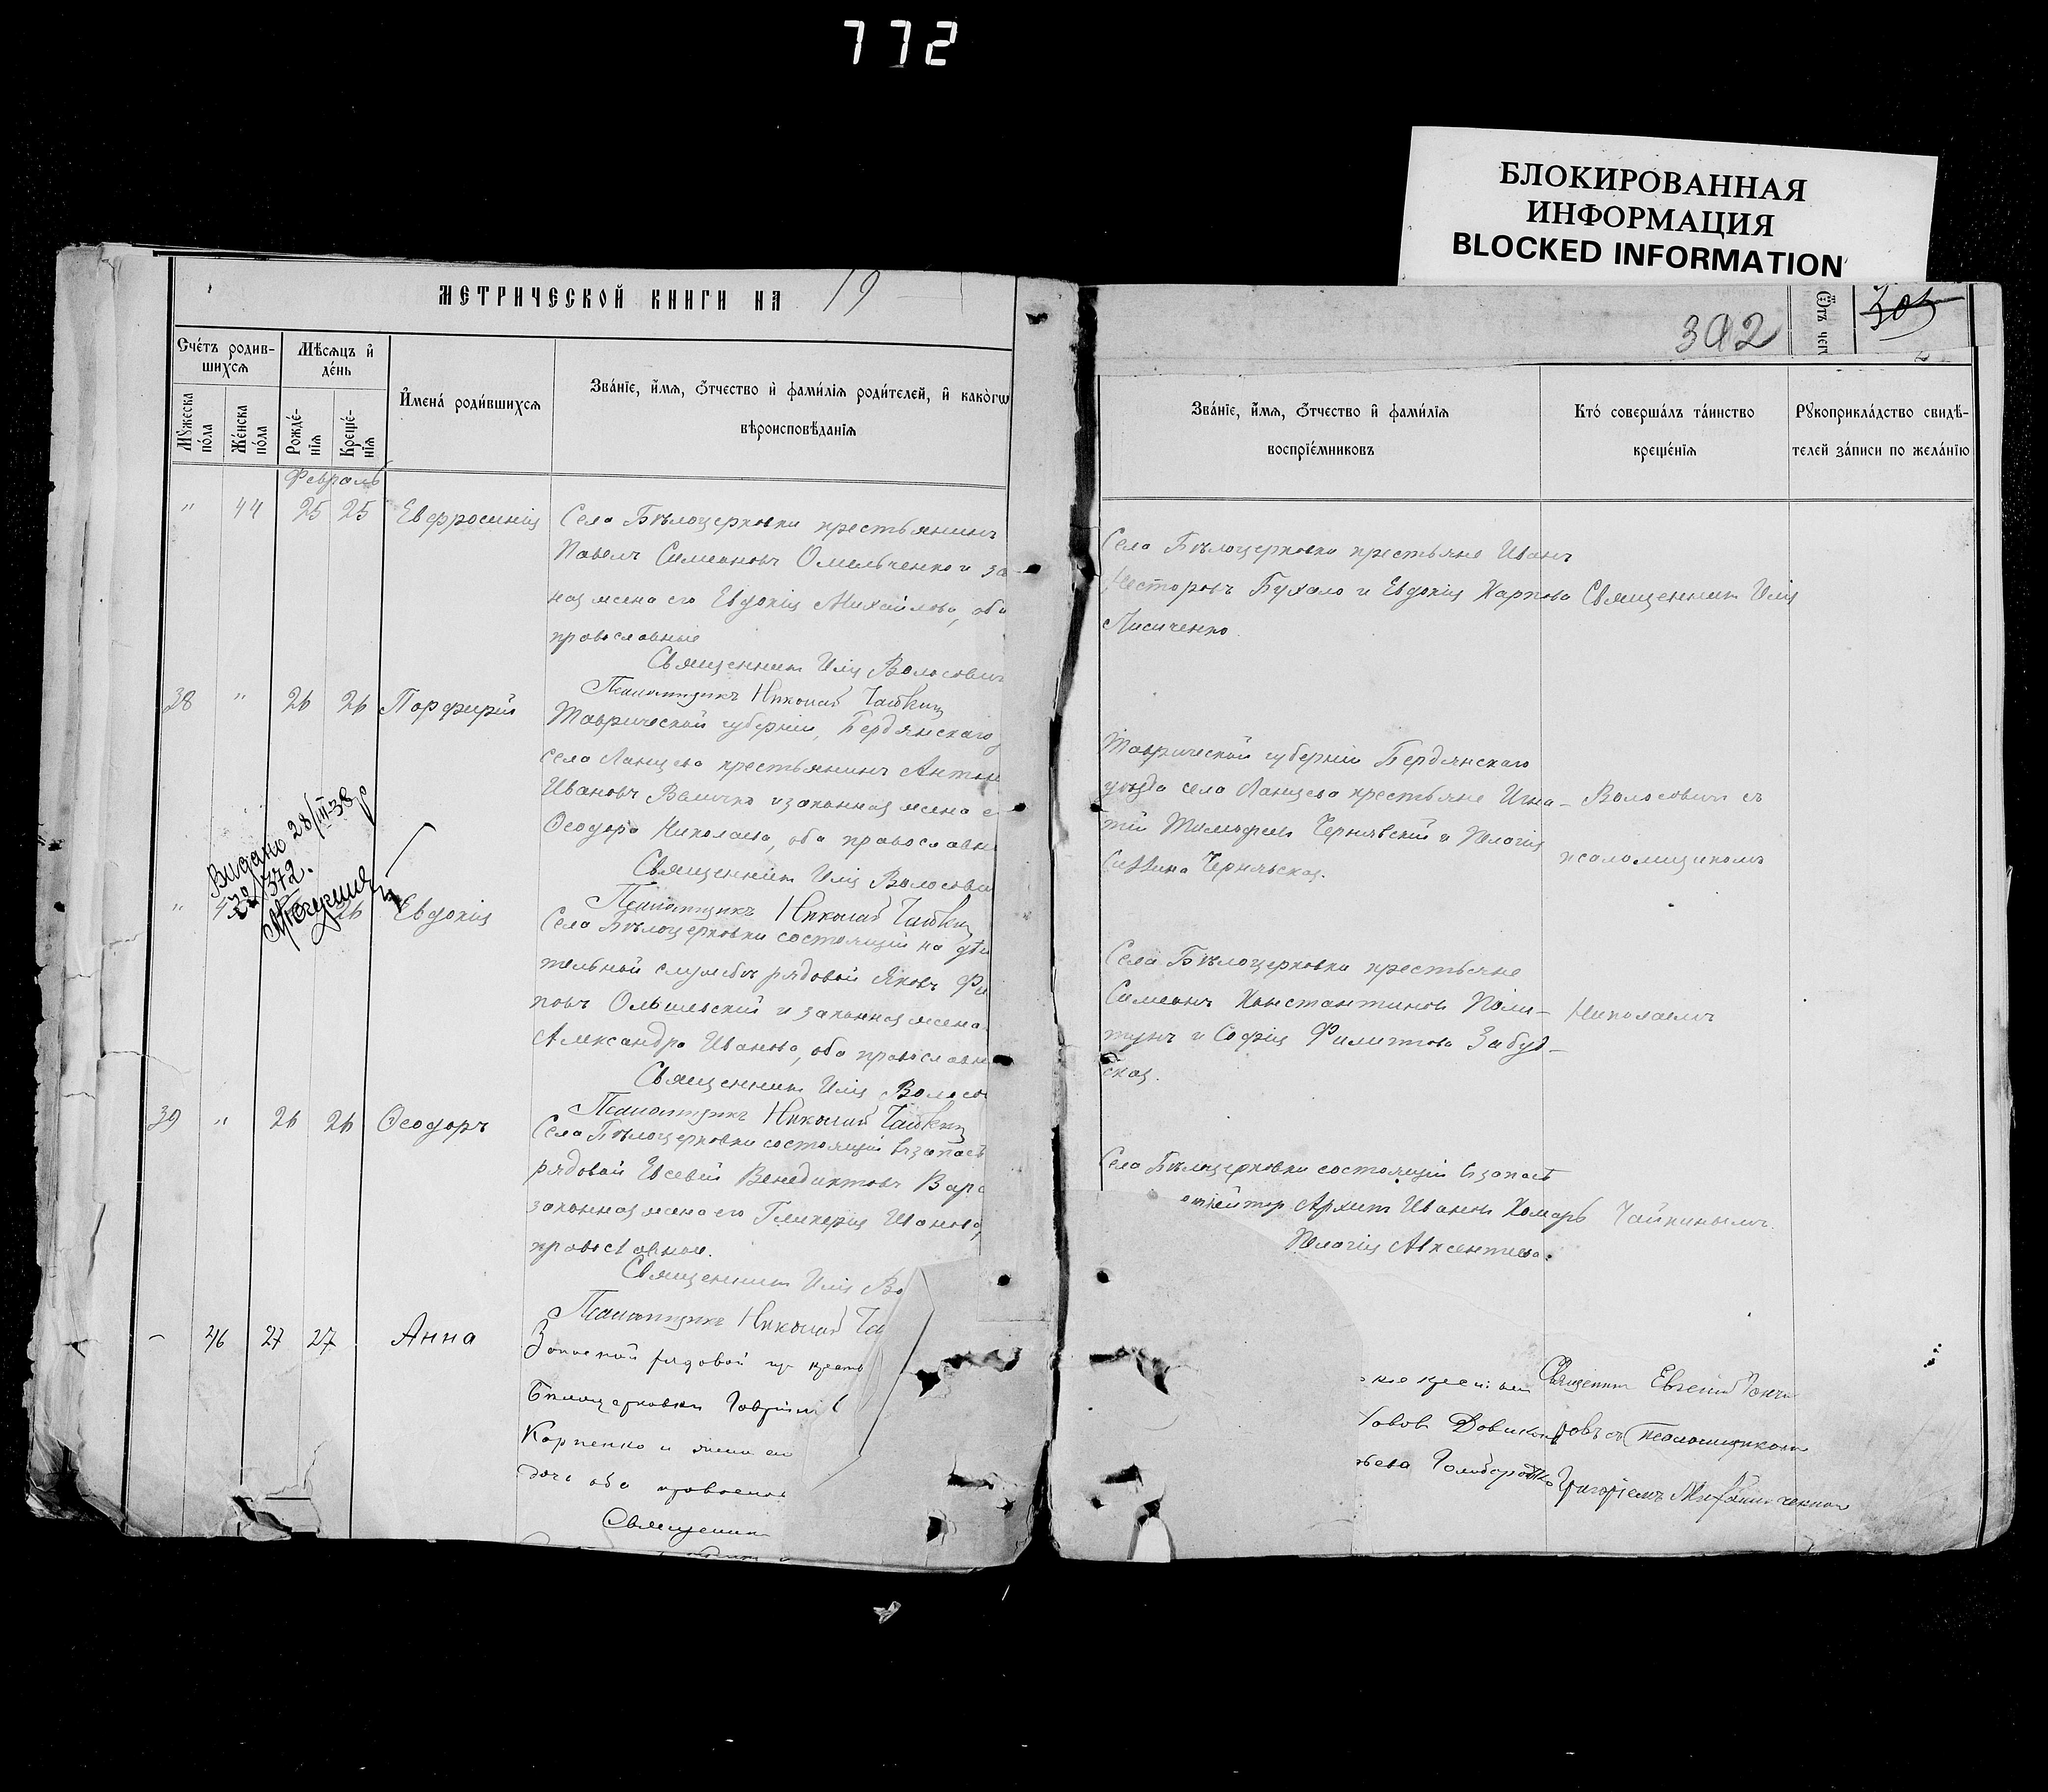 772
БЛОКИРОВАННАЯ
ИНФОРМАЦИЯ
BLOCKED INFORMATION
МЕТРИЧЕСКОЙ КНИГИ НА 19
Счетъ родив-
шихся
Мѣсяцъ и
день
Имена родившихся
Званіе, имя, отчество и фамилія родителей, и какогω
вѣроисповѣданія
Мужеска
пола
Женска
пола
Рожде-
нія
Креще-
нія
Февраль
" 44 25 25 Евфросинія
Села Бѣлоцерковки крестьянинъ
Павелъ Симеоновъ Омельченко и за
ная жена его Евдокія Михайлова, оба
православные
Священникъ Илія Волосович
Псаломщикъ Николай Чайкин
38 " 26 26 Порфирий
Таврической губерніи, Бердянскаго
села Ланцево крестьянинъ Антон
Ивановъ Величко и законная жена е
Ѳеодора Николаева, оба православн
Священникъ Илія Волосови
Псаломщикъ Николай Чайкин
Видано 28/III-38 р
372.
" 26 Евдокія
Села Бѣлоцерковки состоящій на дѣи
тельной службѣ рядовой Яковъ Фи
повъ Ольшевский и законная жена
Александра Иванова, оба православн
Священникъ Илія Волосо
Псаломщикъ Николай Чайкин
39 " 26 26 Ѳеодоръ
Села Бѣлоцерковки состоящій в запасѣ
рядовой Евсевій Венедиктовъ Вар
законная жена его Гликерія Иванова,
православные.
Священникъ Илія Во
Псаломщикъ Николай Ча
– 46 27 27 Анна
Запасной рядовой из крест
Белоцерковки Гавриил
Карпенко и жена ее
оба православн
Священник
392
305
Ѿтъ чег
Званіе, имя, отчество и фамилія
воспріемниковъ
Кто совершалъ таинство
крещенія
Рукоприкладство свидѣ-
телей записи по желанію
Села Бѣлоцерковки крестьяне Иванъ
Несторовъ Бухало и Евдокія Карпова Священник Илія
Лисиченко.
Таврической губерніи Бердянскаго
уѣзда села Ланцева крестьяне Игна- Волосович съ
тій Тимофеев Чернявский и Пелагія
Саввина Чернявская. псаломщиком
Села Бѣлоцерковки крестьяне
Симеонъ Константинов Поли- Николаемъ
тунъ и Софія Филиппова Забуд-
ская.
Села Бѣлоцерковки состоящій в запасѣ
Архип Иванов Комаръ Чайкинымъ.
Пелагія Авксентиева.
Священник Евгений Гонча
ровъ съ псаломщиком
Григоріемъ Михайличенком